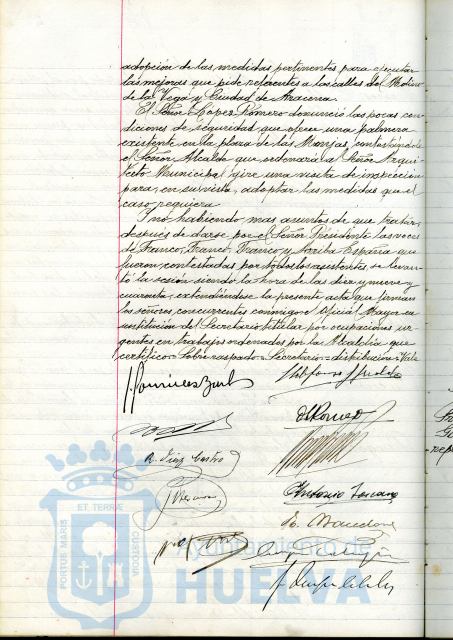 adopcion de las medidas pertinentes para ejecutar
las mejoras que pide referentes a las calles del Molino
de la Vega y Ciudad de Aracena
El Señor Lopez Romero denunció las pocas con-
diciones de seguridad que ofrece una palmera
existente en la plaza de las Monjas, contestándole
el Señor Alcalde que ordenará al Señor Arqui-
tecto Municipal gire una visita de inspección
para, en su vista, adoptar las medidas que el
caso requiera
Y no habiendo mas asuntos de que tratar,
despues de darse por el Señor Presidente las voces
de Franco, Franco, Franco y Arriba España que
fueron contestadas por todos los asistentes, se levan-
tó la sesión siendo la hora de las diez y nueve y
cuarenta, extendiéndose la presente acta que firman
los señores concurrentes conmigo el Oficial Mayor en
sustitución del Secretario titular por ocupaciones ur-
gentes en trabajos ordenados por la Alcaldia que
certifico. Sobre raspado = Secretario = distribución = Vale
R. Diaz Castro
Antonio Toscano
PORTUS MARIS ET TERRÆ CUSTODIA
Ayuntamiento de
HUELVA